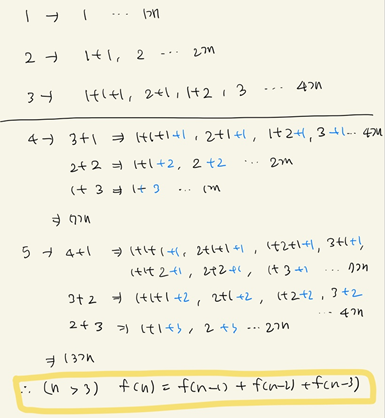 1 → 1 ... 1개
2 → 1+1, 2 ... 2개
3 → 1+1+1, 2+1, 1+2, 3 ... 4개
4 → 3+1 ⇒ 1+1+1+1, 2+1+1, 1+2+1, 3+1 ... 4개
2+2 ⇒ 1+1+2, 2+2 ... 2개
1+3 ⇒ 1+3 ... 1개
⇒ 7개
5 → 4+1 ⇒ 1+1+1+1+1, 2+1+1+1, 1+2+1+1, 3+1+1,
1+1+2+1, 2+2+1, 1+3+1 ... 7개
3+2 ⇒ 1+1+1+2, 2+1+2, 1+2+2, 3+2
... 4개
2+3 ⇒ 1+1+3, 2+3 ... 2개
⇒ 13개
∴ (n > 3) f(n) = f(n-1) + f(n-2) + f(n-3)